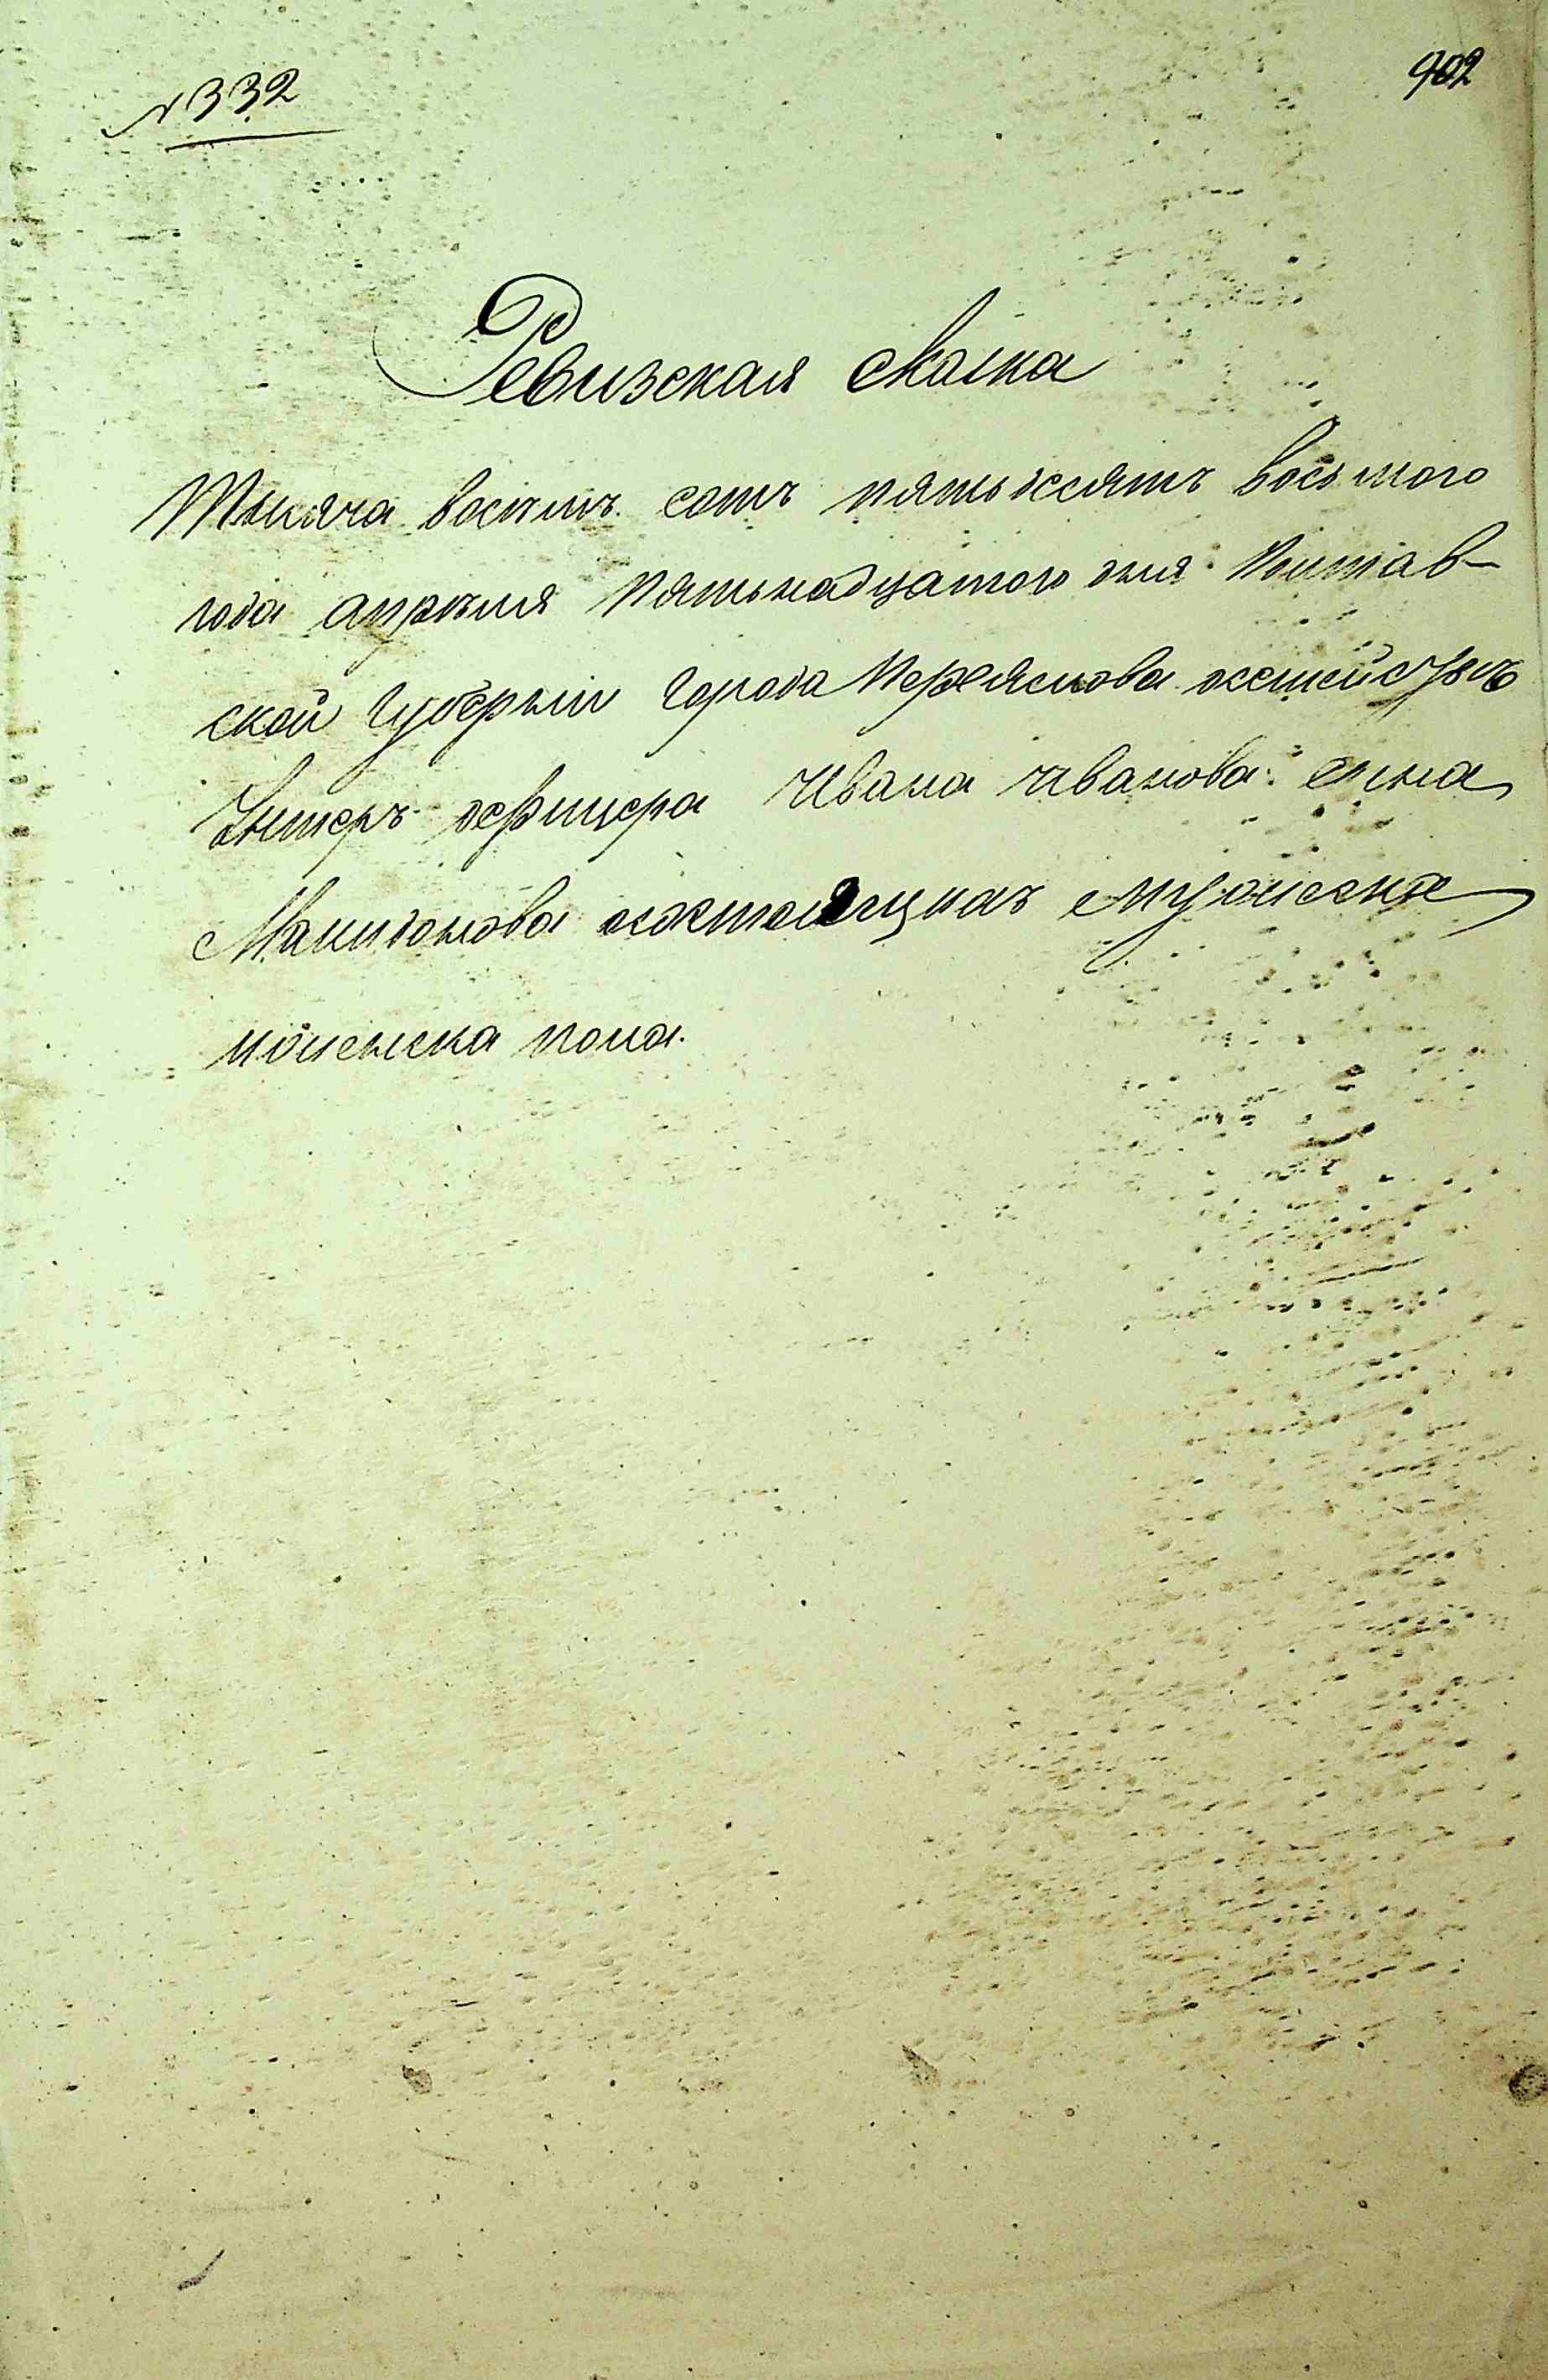 № 332
902
Ревизская скаска
Тысяча восемъ сотъ пятьдесятъ восьмого
года апреля пятьнадцатого дня Полтав-
ской Губерніи Города Переяслова
Унтеръ офицера Ивана Иванова сына
Макидонова состоящихъ мужеска
и женска пола.